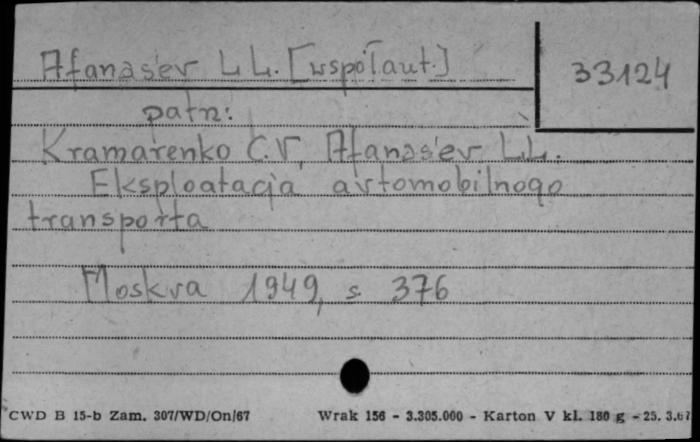 Afanas'ev L Ł. [współaut.]
33124
patrz:
Kramarenko G.V, Afanas'ev L.L.
Eksploatacja avtomobilnogo
transporta
Moskva 1949, s 376
CWD B 15-b Zam. 307/WD/On/67 Wrak 156 - 3.305.000 - Karton V kl. 180 g - 25. 3.67